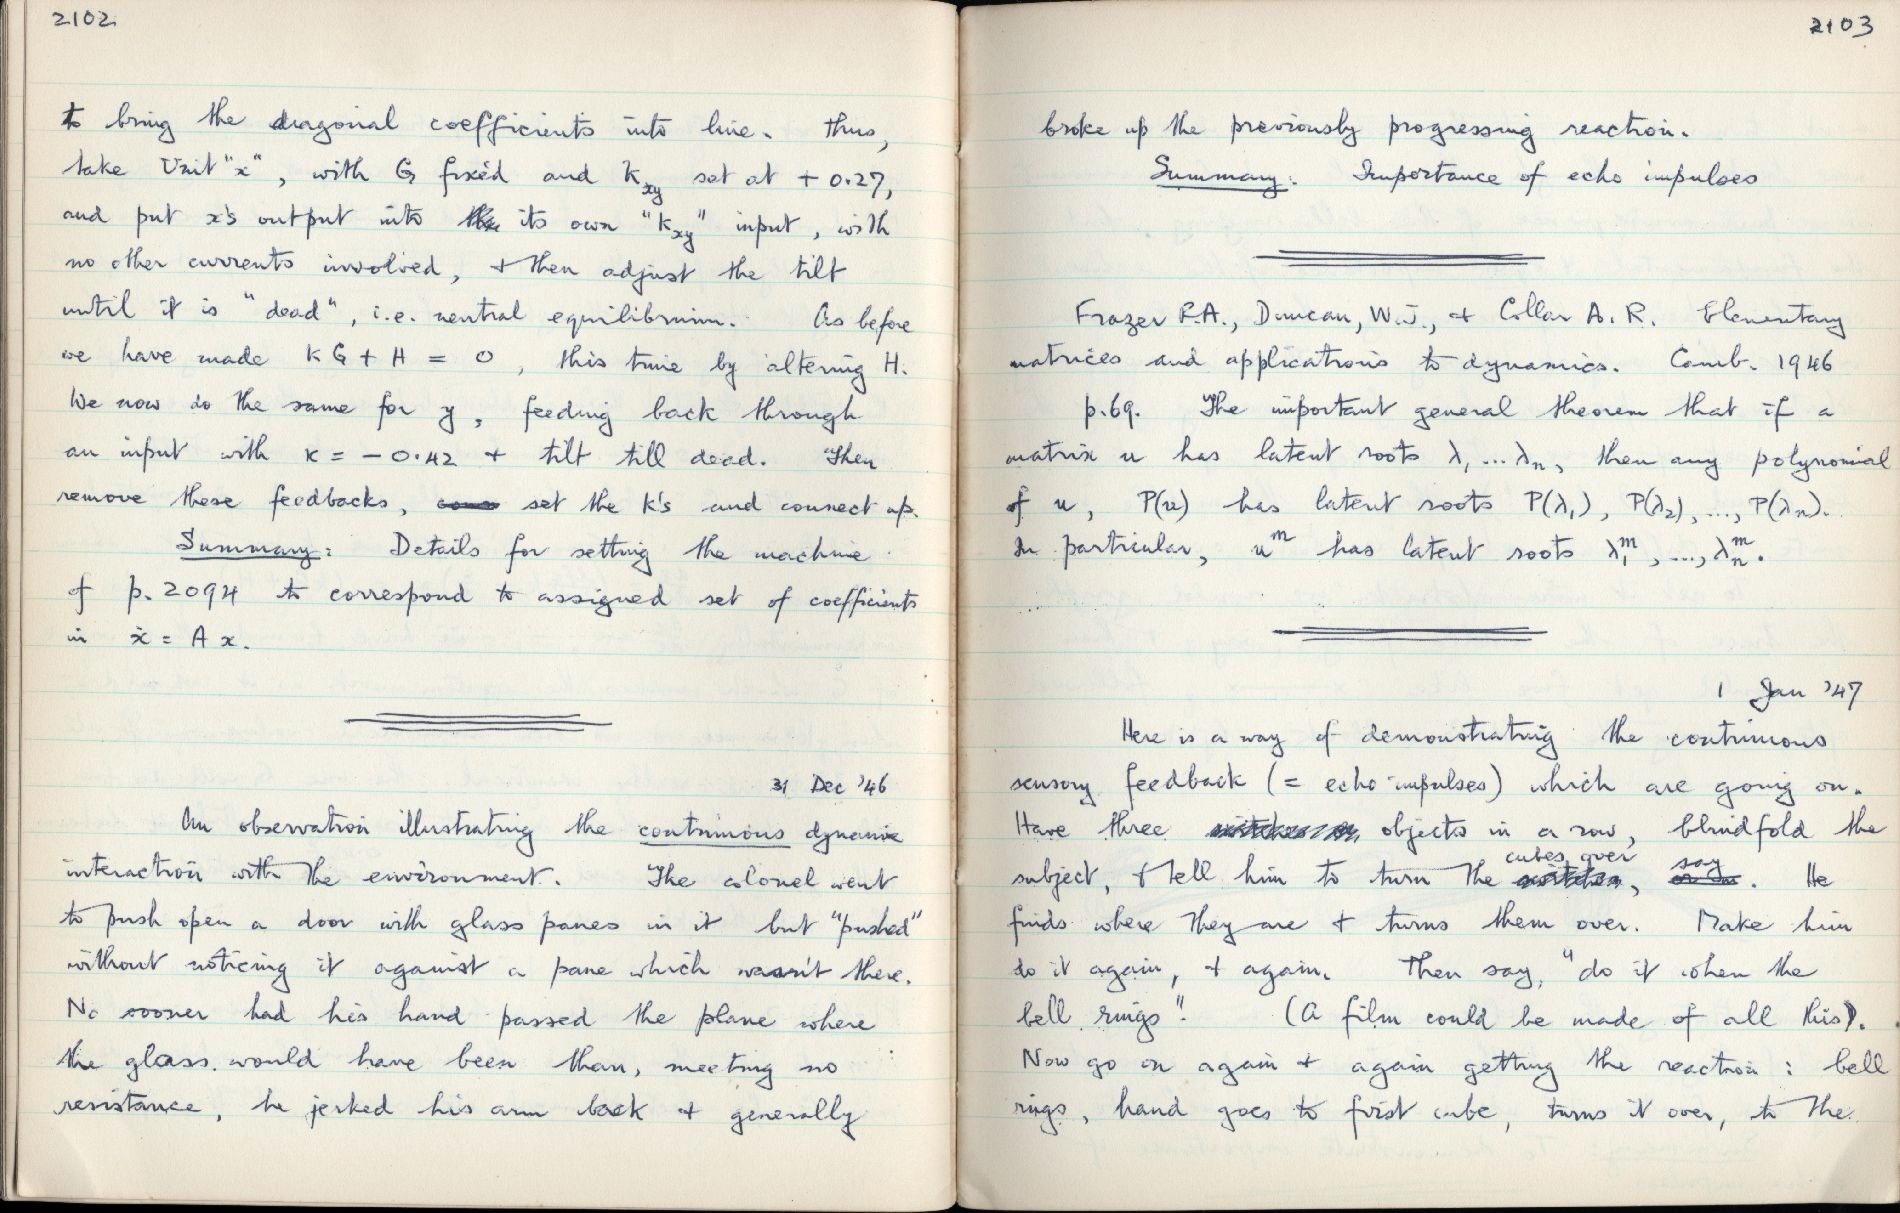 2102
to bring the diagonal coefficients into line. Thus,
take Unit "x", with G fixed and Kxy set at + 0.27,
and put x's output into its own "Kxy" input, with
no other currents involved, + then adjust the tilt
until it is "dead", i.e. neutral equilibrium. As before
we have made KG + H = 0, this time by altering H.
We now do the same for y, feeding back through
an input with K = - 0.42 + tilt till dead. Then
remove these feedbacks, set the K's and connect up.
Summary: Details for setting the machine
of p. 2094 to correspond to assigned set of coefficients
in ẋ = A x.
31 Dec '46
An observation illustrating the continuous dynamic
interaction with the environment. The colonel went
to push open a door with glass panes in it but "pushed"
without noticing it against a pane which wasn't there.
No sooner had his hand passed the plane where
the glass would have been than, meeting no
resistance, he jerked his arm back + generally
2103
broke up the previously progressing reaction.
Summary: Importance of echo impulses
Frazer R.A., Duncan, W.J., + Collar A.R. Elementary
matrices and applications to dynamics. Camb. 1946
p.69. The important general theorem that if a
matrix u has latent roots λ₁ ... λₙ, then any polynomial
of u, P(u) has latent roots P(λ₁), P(λ₂), ..., P(λₙ).
In particular, uᵐ has latent roots λ₁ᵐ, ..., λₙᵐ.
1 Jan '47
Here is a way of demonstrating the continuous
sensory feedback (= echo impulses) which are going on.
Have three objects in a row, blindfold the
subject, + tell him to turn the cubes over, say. He
finds where they are + turns them over. Make him
do it again, + again. Then say, "do it when the
bell rings". (A film could be made of all this).
Now go on again + again getting the reaction : bell
rings, hand goes to first cube, turns it over, to the